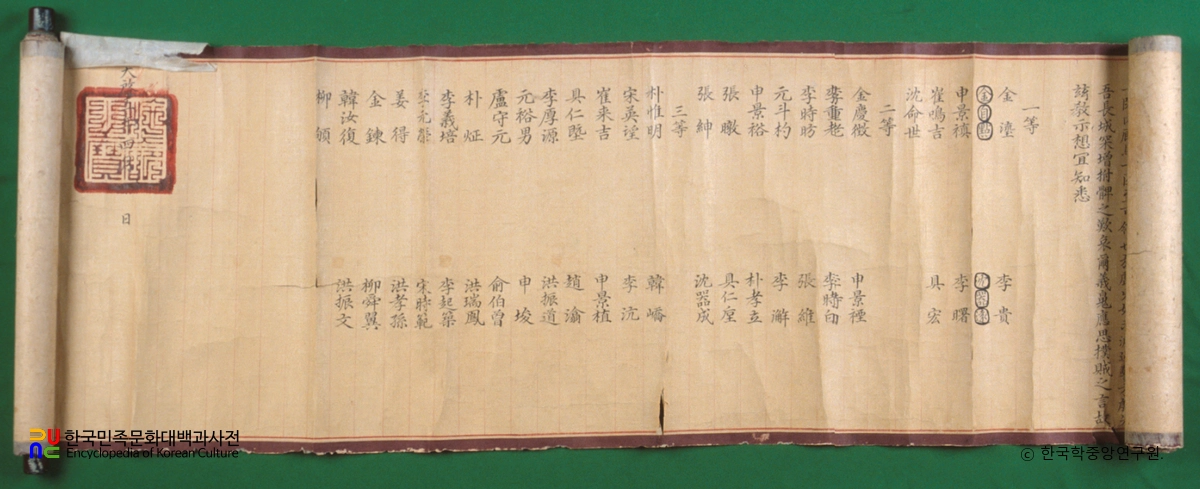 長城 增拊髀之歎 爾義 應思撲賊之言故
玆敎示想宜知悉
一等
金瑬 李貴
金自點
申景禛 李曙
崔鳴吉 具宏
沈命世
二等
金慶徵 申景禋
李重老 李時白
李時昉 張維
元斗杓 李澥
申景裕 朴孝立
張暾 具仁垕
張紳 沈器成
三等
朴惟明 韓嶠
宋英望 李沆
崔來吉 申景植
具仁墍 趙潝
李厚源 洪振道
元裕男 申埈
盧守元 兪伯曾
朴炡 洪瑞鳳
李義培 李起築
李元榮 宋時範
姜得 洪孝孫
金鍊 柳舜翼
韓汝復 洪振文
柳頔
日
한국민족문화대백과사전
Encyclopedia of Korean Culture
ⓒ 한국학중앙연구원.